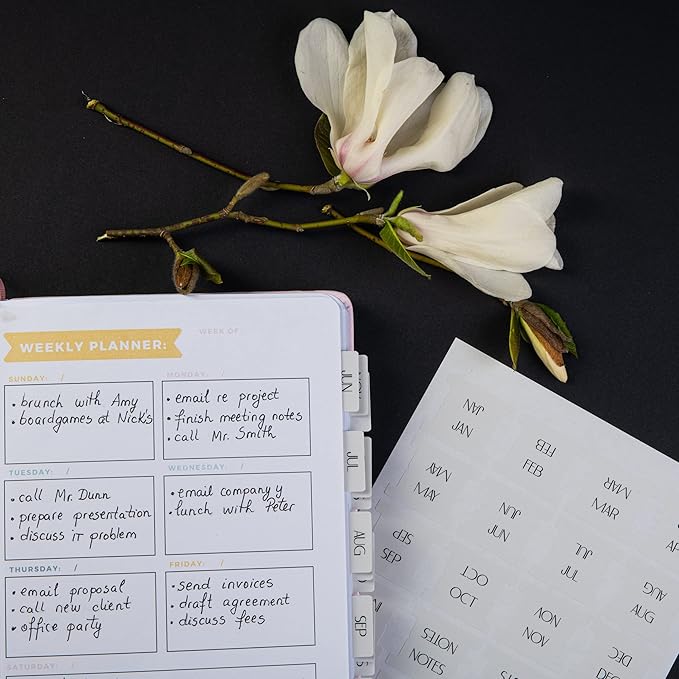 WEEKLY PLANNER:
WEEK OF
SUNDAY: /
• brunch with Amy
• boardgames at Nick's
MONDAY: /
• email re project
• finish meeting notes
• call Mr. Smith
TUESDAY: /
• call Mr. Dunn
• prepare presentation
• discuss IT problem
WEDNESDAY: /
• email company y
• lunch with Peter
THURSDAY: /
• email proposal
• call new client
• office party
FRIDAY: /
• send invoices
• draft agreement
• discuss fees
SATURDAY: /
JUN
JUL
AUG
SEP
JAN
JAN
FEB
FEB
MAR
MAR
MAY
MAY
JUN
JUN
JUL
JUL
AUG
AUG
SEP
SEP
OCT
OCT
NOV
NOV
DEC
DEC
NOTES
NOTES